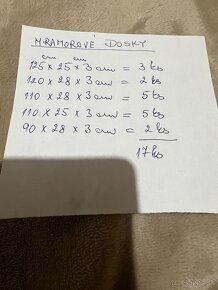 MRAMOROVÉ DOSKY
cm cm
125 x 25 x 3 cm = 3 ks
120 x 28 x 3 cm = 2 ks
110 x 28 x 3 cm = 5 ks
110 x 25 x 3 cm = 5 ks
90 x 28 x 3 cm = 2 ks
17 ks